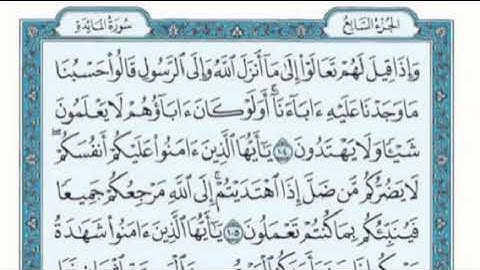 الجزء السابع
سورة المائدة
وَإِذَا قِيلَ لَهُمْ تَعَالَوْا۟ إِلَىٰ مَآ أَنزَلَ ٱللَّهُ وَإِلَى ٱلرَّسُولِ قَالُوا۟ حَسْبُنَا
مَا وَجَدْنَا عَلَيْهِ ءَابَآءَنَآ ۚ أَوَلَوْ كَانَ ءَابَآؤُهُمْ لَا يَعْلَمُونَ
شَيْـًٔا وَلَا يَهْتَدُونَ ١٠٤ يَـٰٓأَيُّهَا ٱلَّذِينَ ءَامَنُوا۟ عَلَيْكُمْ أَنفُسَكُمْ ۖ
لَا يَضُرُّكُم مَّن ضَلَّ إِذَا ٱهْتَدَيْتُمْ ۚ إِلَى ٱللَّهِ مَرْجِعُكُمْ جَمِيعًا
فَيُنَبِّئُكُم بِمَا كُنتُمْ تَعْمَلُونَ ١٠٥ يَـٰٓأَيُّهَا ٱلَّذِينَ ءَامَنُوا۟ شَهَـٰدَةُ